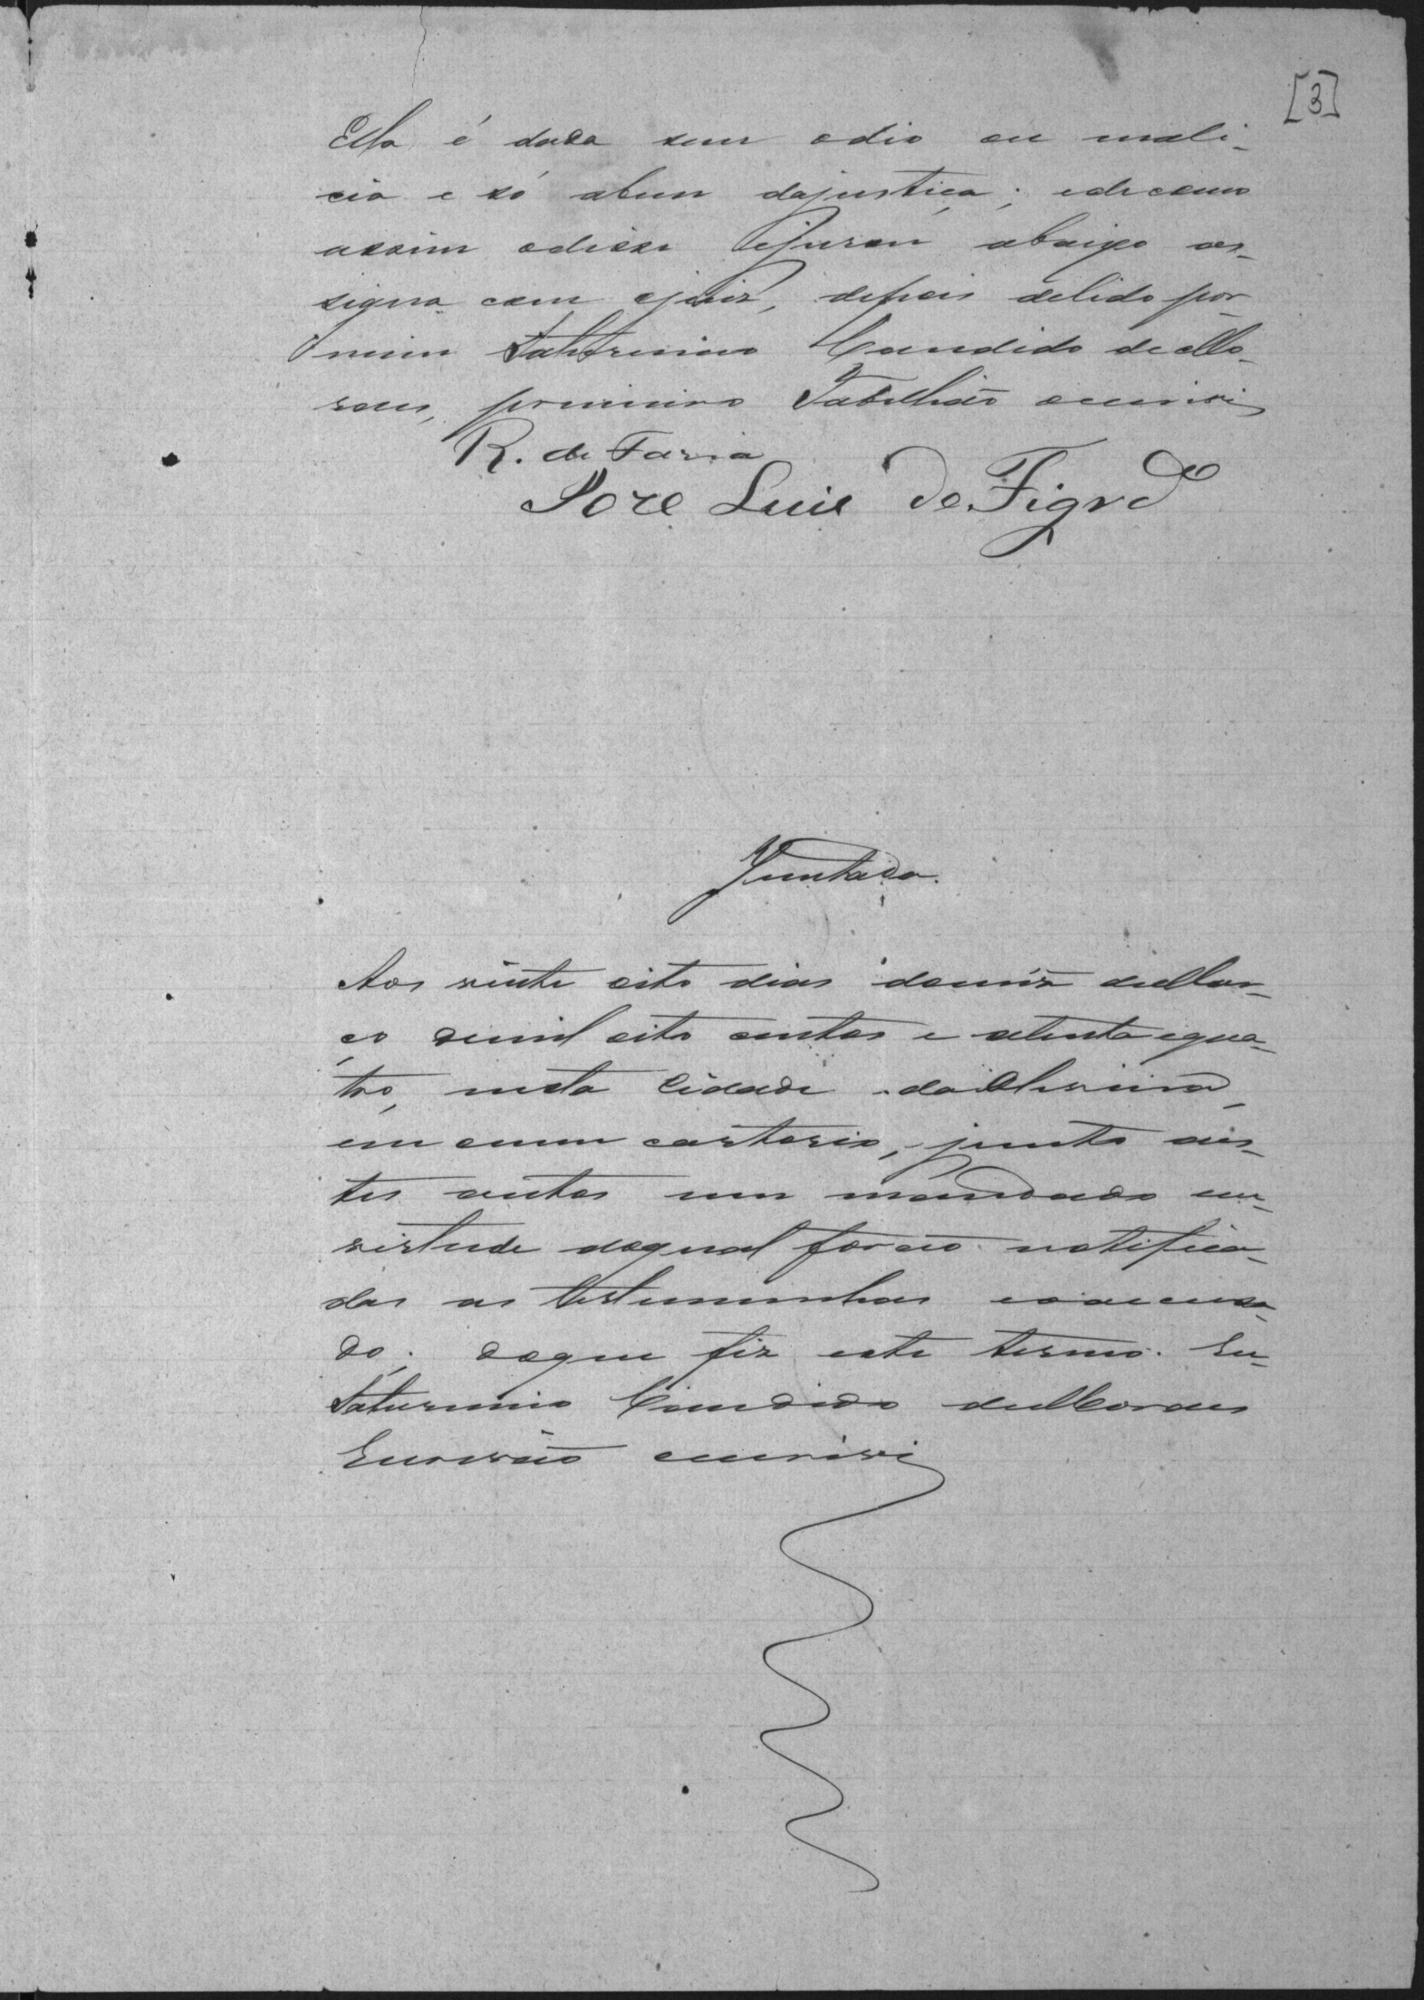 [3]
Ella é dada sem odio ou mali-
cia e só abem dajustiça; ede como
assim odisse ejurou abaixo as-
signa com ojuiz, depois delido por
mim Saturnino Candido deMo-
raes, primeiro Tabellião escrivi
R. de Faria
Jose Luis de Figrdo
Juntada.
Aos vinte oito dias domez deMar-
ço demil oito centos e oitenta equa-
tro, nesta Cidade
em meu cartorio, junto aes-
tes autos um mandado em
virtude doqual forão notifica-
das as testemunhas eoaccusa-
do; doque fiz este termo. Eu
Saturnino Candido deMoraes
Escrivão escrivi